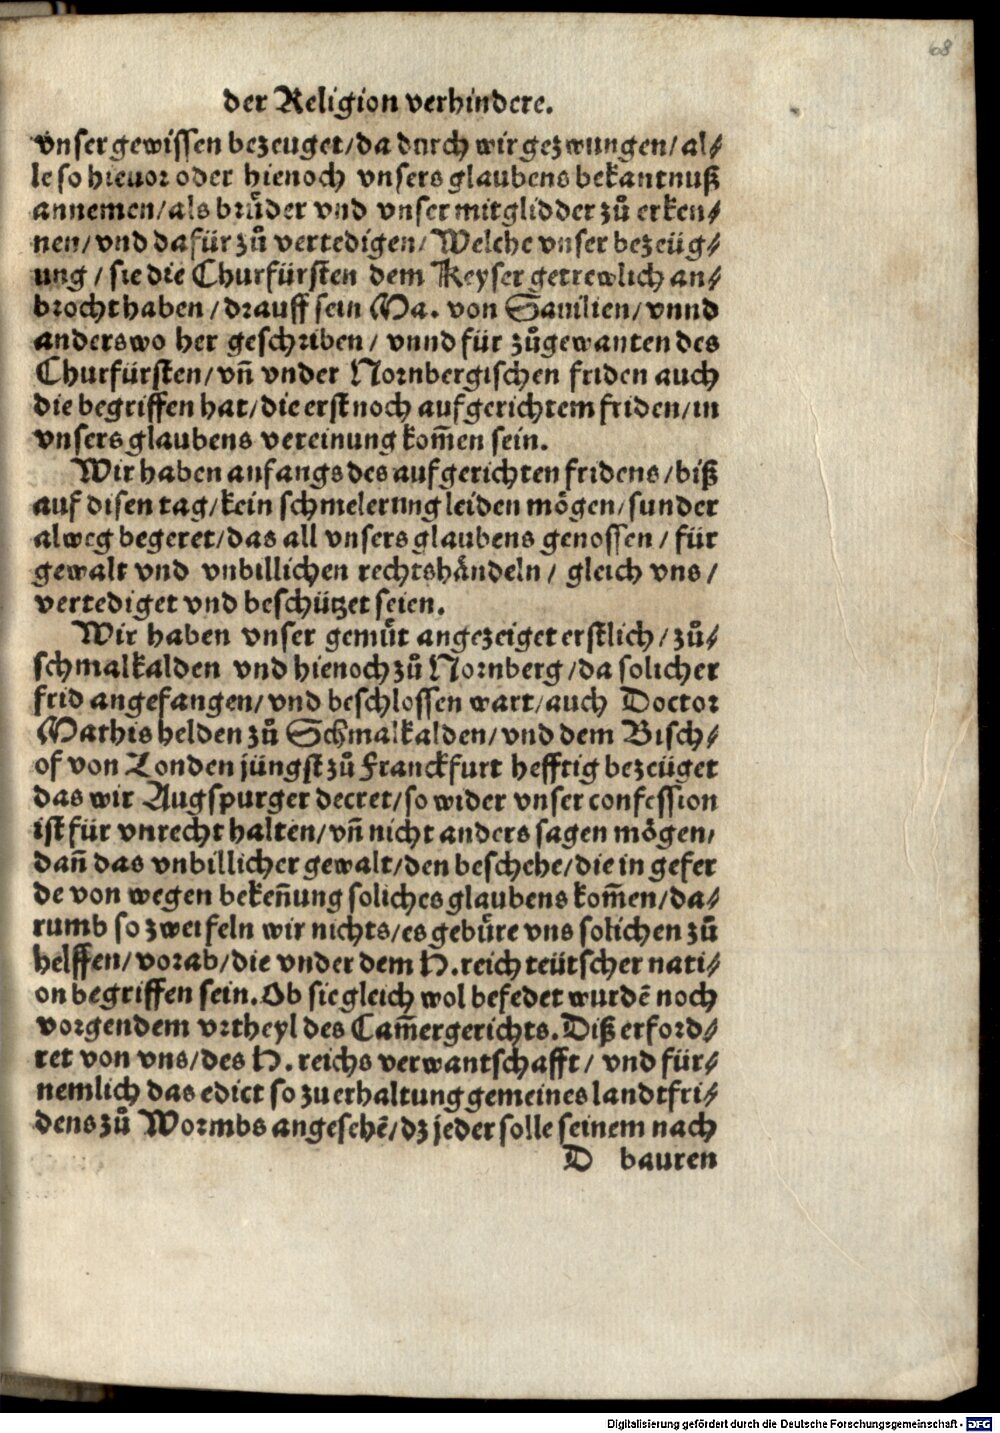 68
der Religion verhindere.
vnser gewissen bezeuget/da durch wir gezwungen/al⸗
le so hieuor oder hienoch vnsers glaubens bekantnuß
annemen/als bruͤder vnd vnser mitglidder zuͦ erken⸗
nen/vnd dafür zuͦ vertedigen/Welche vnser bezeüg⸗
ung/sie die Churfürsten dem Keyser getrewlich an⸗
brocht haben/drauff sein Ma. von Sauilien/vnnd
anderswo her geschriben/vnnd für zuͦgewanten des
Churfürsten/vñ vnder Nornbergischen friden auch
die begriffen hat/die erst noch aufgerichtem friden/in
vnsers glaubens vereinung kom̃en sein.
Wir haben anfangs des aufgerichten fridens/biß
auf disen tag/kein schmelerung leiden moͤgen/sunder
alweg begeret/das all vnsers glaubens genossen/für
gewalt vnd vnbillichen rechtshaͤndeln/gleich vns/
vertediget vnd beschützet seien.
Wir haben vnser gemuͤt angezeiget erstlich/zuͦ⸗
schmalkalden vnd hienoch zuͦ Nornberg/da solicher
frid angefangen/vnd beschlossen wart/auch Doctor
Mathis helden zuͦ Schmalkalden/vnd dem Bisch⸗
of von Londen jüngst zuͦ Franckfurt hefftig bezeüget
das wir Augspurger decret/so wider vnser confession
ist für vnrecht halten/vñ nicht anders sagen moͤgen/
dañ das vnbillicher gewalt/den beschehe/die in gefer
de von wegen bekeñung soliches glaubens kom̃en/da⸗
rumb so zweifeln wir nichts/es gebuͤre vns solichen zuͦ
helffen/vorab/die vnder dem H. reich teütscher nati⸗
on begriffen sein. Ob sie gleich wol befedet wurdẽ noch
vorgendem vrtheyl des Cam̃ergerichts. Diß erford⸗
ret von vns/des H. reichs verwantschafft/vnd für⸗
nemlich das edict so zu erhaltung gemeines landtfri⸗
dens zuͦ Wormbs angesehẽ/dz jeder solle seinem nach
D bauren
Digitalisierung gefördert durch die Deutsche Forschungsgemeinschaft - DFG